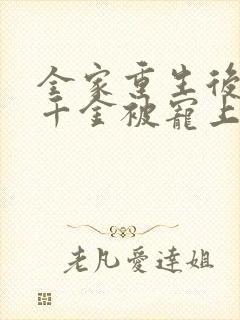 全家重生後
千金被寵上
老凡愛達姐